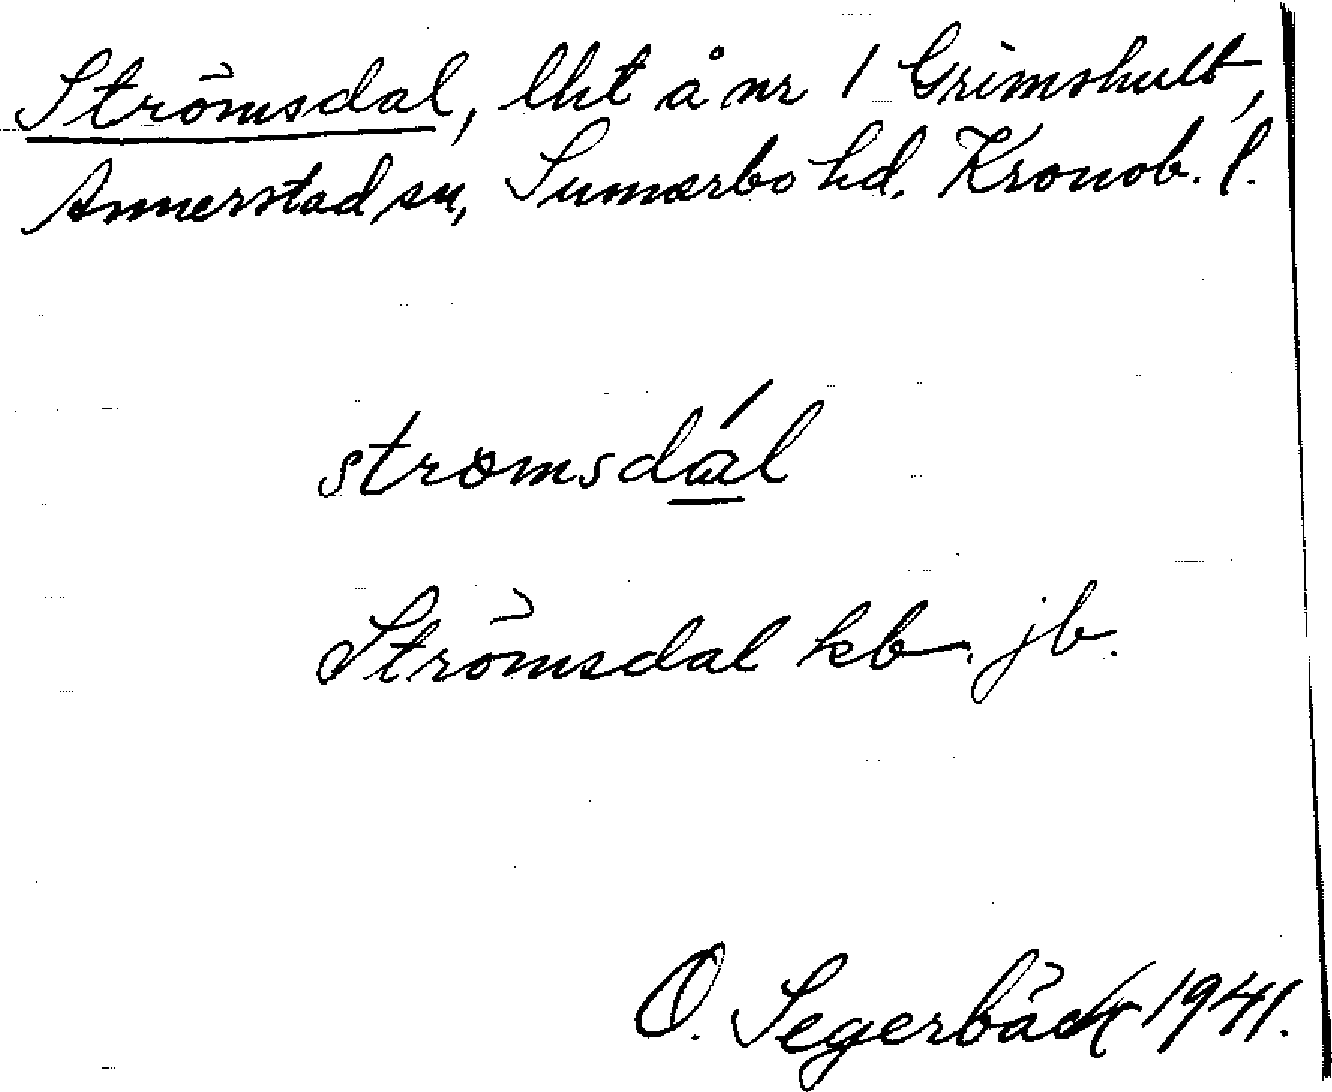 Strömsdal, lht å nr 1 Grimshult,
Annerstad sn, Sunnerbo hd. Kronob. l.
strømsdál
Strömsdal kb. jb.
O. Segerbäck 1941.